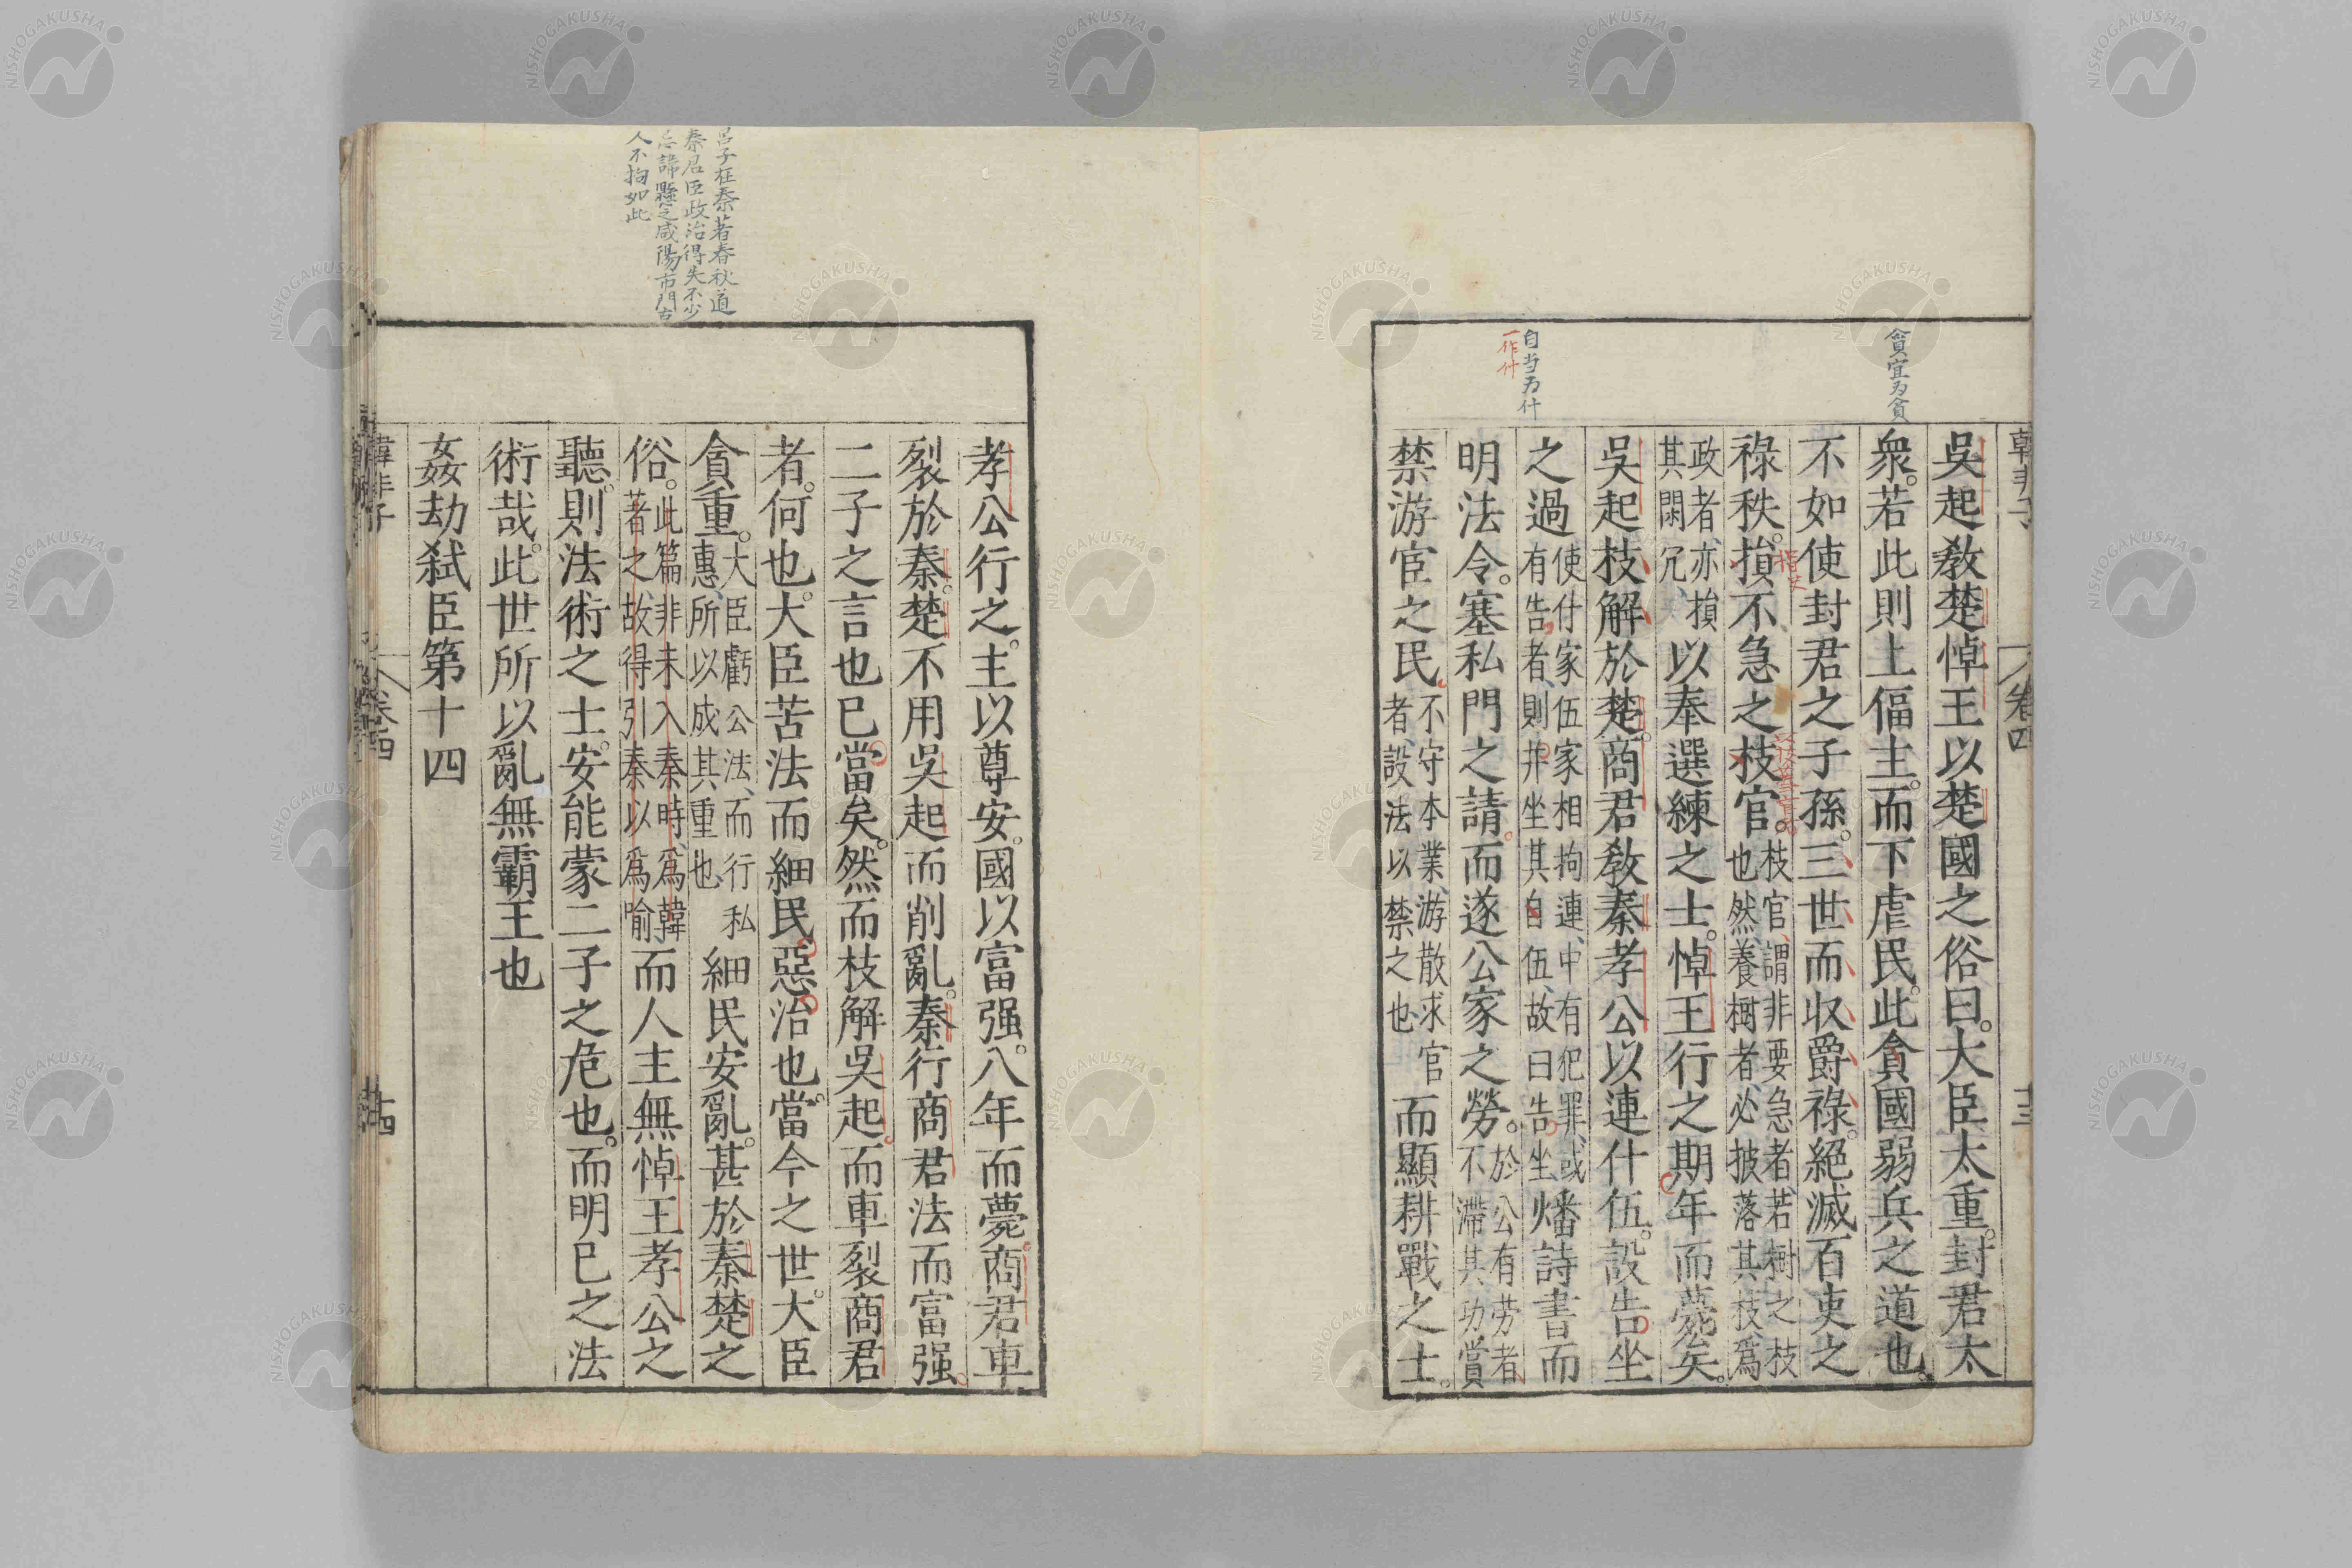 韓非子 卷四 十三
貪宜為貧
吳起教楚悼王以楚國之俗曰。大臣太重。封君太
衆。若此則上偪主。而下虐民。此貪國弱兵之道也。
不如使封君之子孫。三世而収爵祿。絕滅百吏之
祿秩。損不急之枝官。枝官、謂非要急者、若樹之枝
也、然、養樹者、必披落其枝、爲
政者、亦損
其閑冗、以奉選練之士。悼王行之期年而薨矣。
吳起枝解於楚。商君教秦孝公以連什伍。設告坐
之過使什家伍家相拘連、中有犯罪、或
有告者、則并坐其自伍、故曰告坐、燔詩書而
自当为什
一作什
明法令。塞私門之請。而遂公家之勞。於公有劳者、
不滯其功賞
禁游宦之民。不守本業、游散求官
者、設法以禁之也、而顯耕戰之士。
孝公行之。主以尊安。國以富强。八年而薨。商君車
裂於秦。楚不用吳起而削亂。秦行商君法而富强。
二子之言也已當矣。然而枝解吳起。而車裂商君
者。何也。大臣苦法而細民惡治也。當今之世。大臣
貪重。大臣虧公法、而行私
惠、所以成其重也、細民安亂。甚於秦楚之
呂子在秦著春秋道
秦君臣政治得失不少
諱懸之咸陽市門古
人不拘如此
俗。此篇非未入秦時、爲韓
著之、故得引秦以爲喻而人主無悼王孝公之
聽。則法術之士。安能蒙二子之危也。而明已之法
術哉。此世所以亂無霸王也
姦劫弑臣第十四
韓非子 卷四 十四
NISHOGAKUSHA